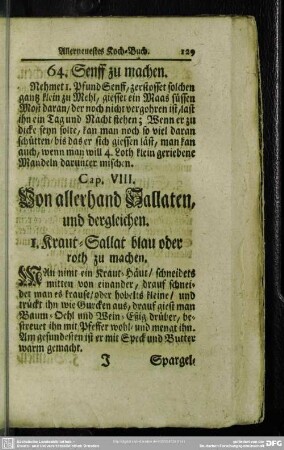 Allerneuestes Koch-Buch. 129
64. Senff zu machen.
Nehmet 1. Pfund Senff, zerstosset solchen
gantz klein zu Mehl, giesset ein Maas süssen
Most daran, der noch nicht vergohren ist, last
ihn ein Tag und Nacht stehen; Wenn er zu
dicke seyn solte, kan man noch so viel daran
schütten, bis das er sich giessen läst, man kan
auch, wenn man will 4. Loth klein geriebene
Mandeln darunter mischen.
Cap. VIII.
Von allerhand Sallaten,
und dergleichen.
1. Kraut-Sallat blau oder
roth zu machen.
MAn nimt ein Kraut-Häut, schneidets
mitten von einander, drauf schnei-
det man es krause, oder hobelts kleine, und
trückt ihn wie Gurcken aus, drauf giest man
Baum-Oehl und Wein-Eßig drüber, be-
streuet ihn mit Pfeffer wohl, und mengt ihn.
Am gesundesten ist er mit Speck und Butter
warm gemacht.
J Spargel-
DFG